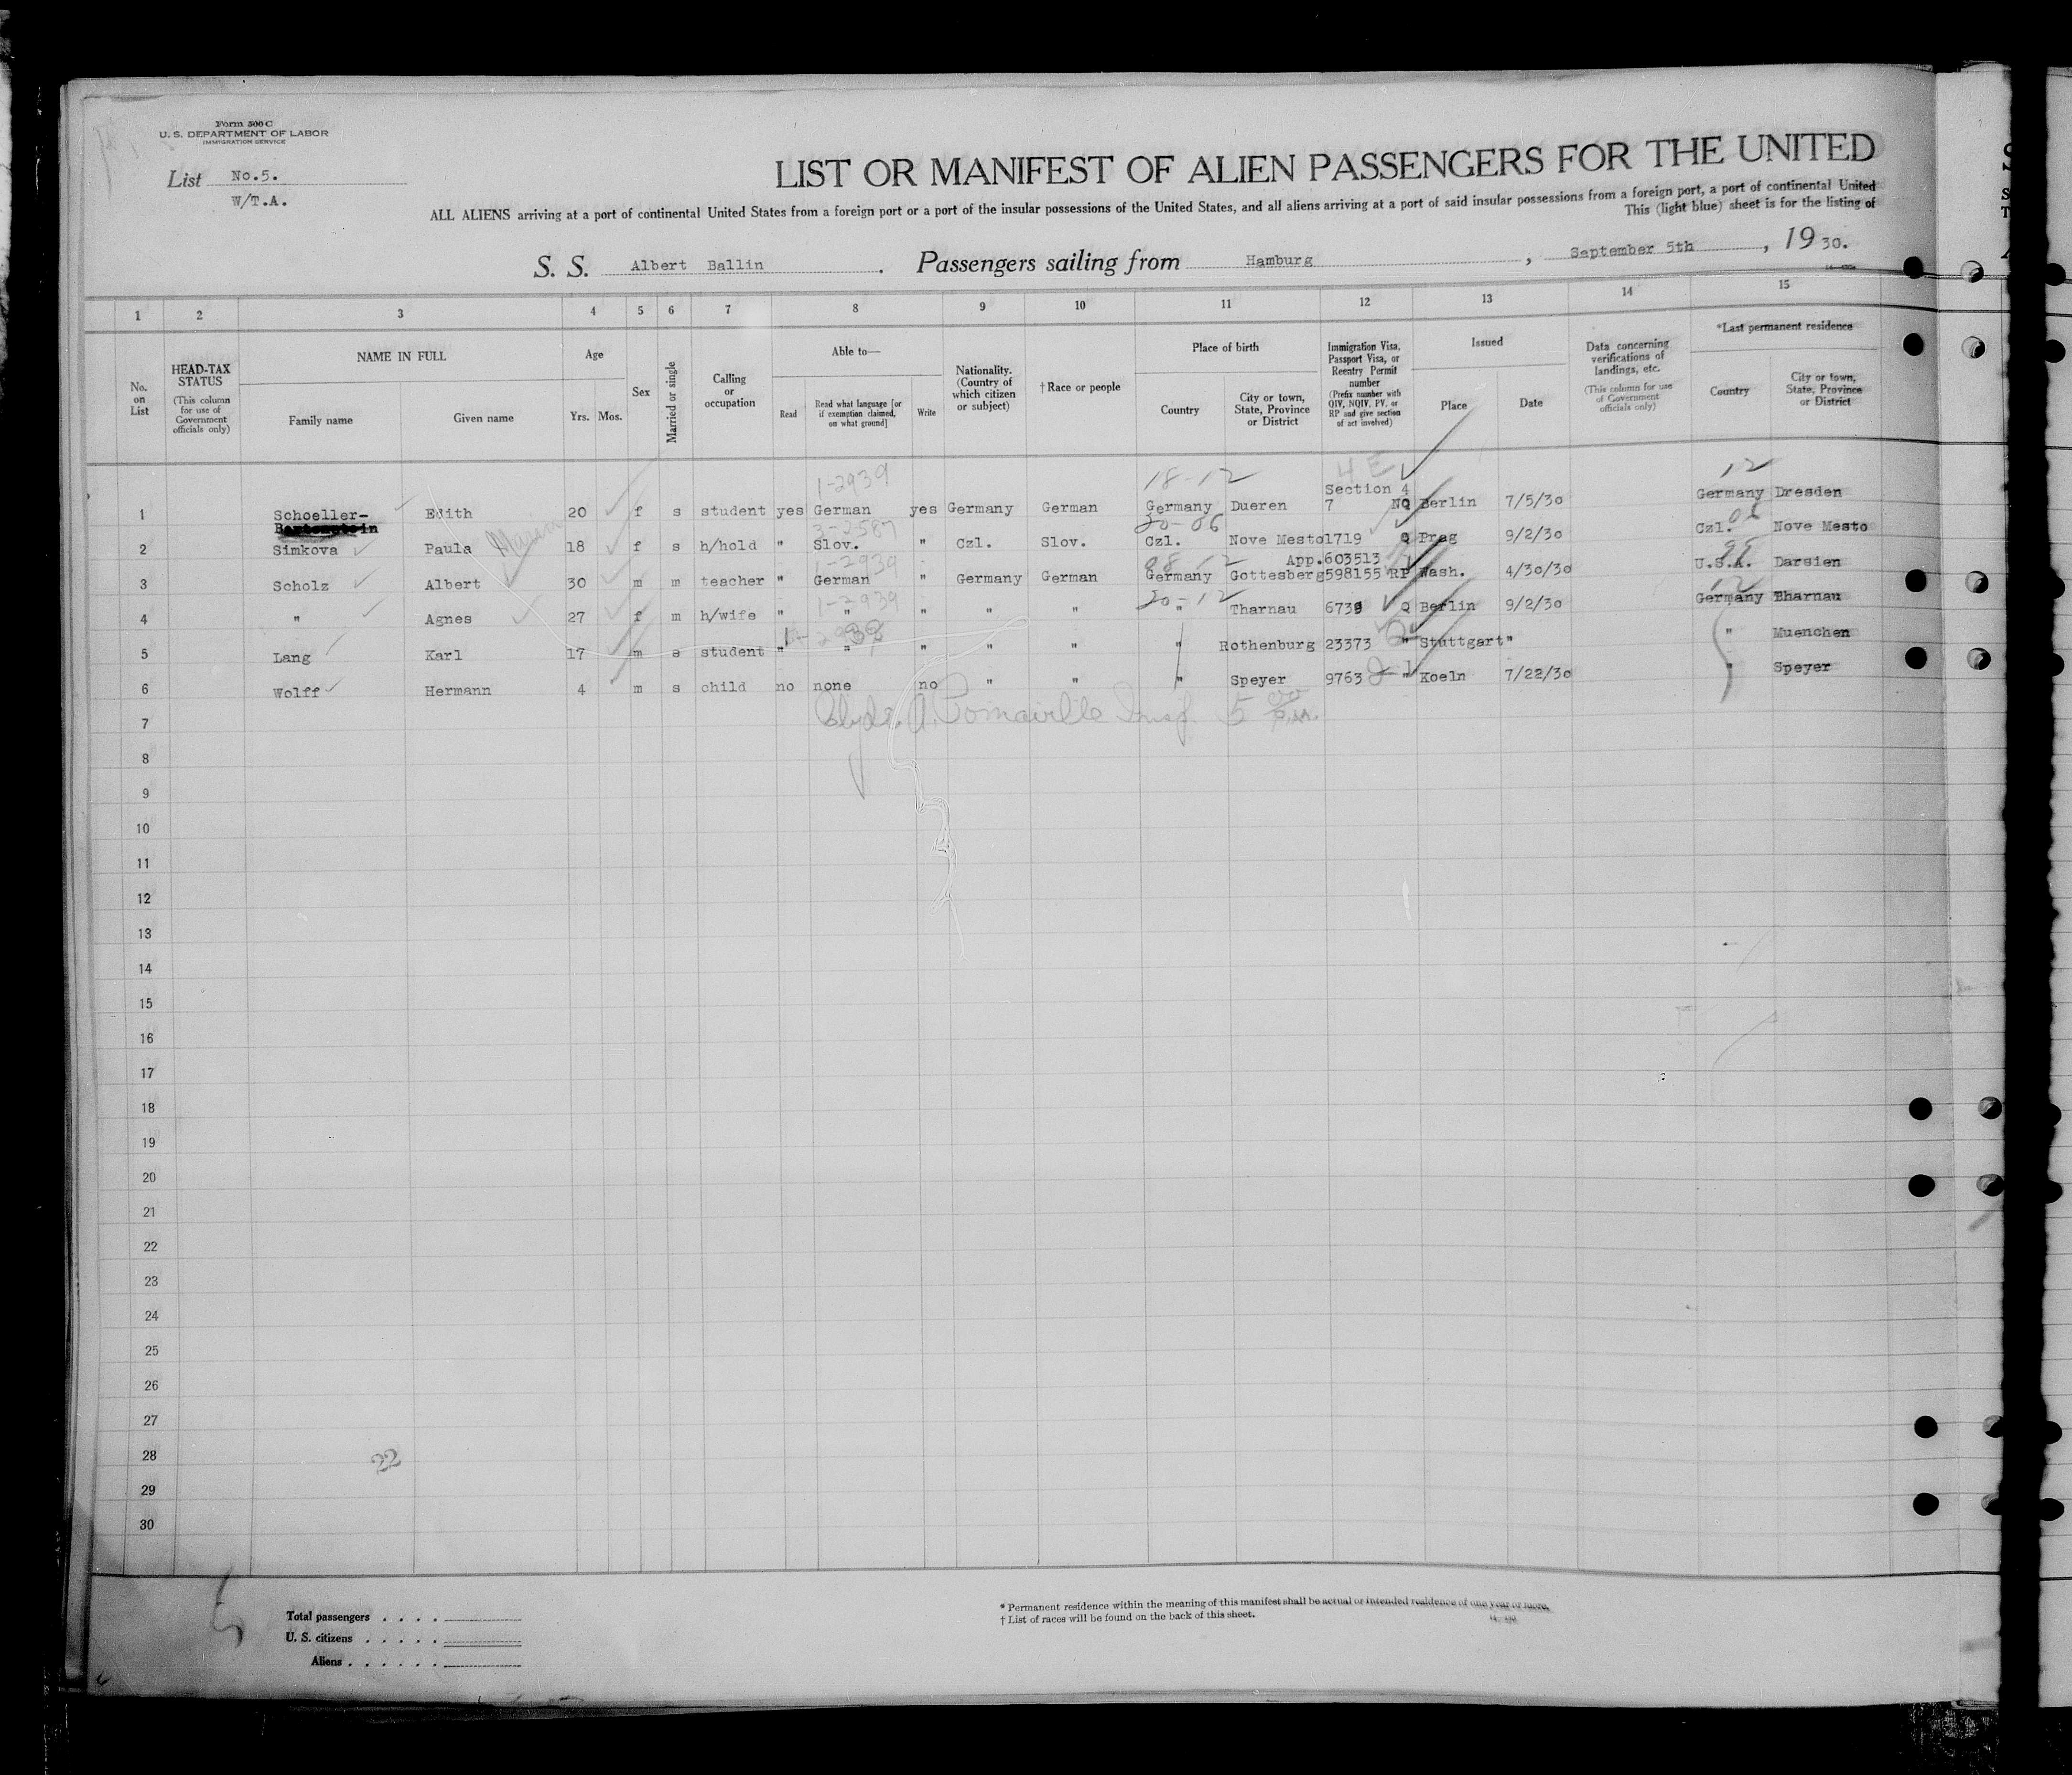 Form 500 C
U. S. DEPARTMENT OF LABOR
IMMIGRATION SERVICE
List No.5.
W/T.A.
LIST OR MANIFEST OF ALIEN PASSENGERS FOR THE UNITED
ALL ALIENS arriving at a port of continental United States from a foreign port or a port of the insular possessions of the United States, and all aliens arriving at a port of said insular possessions from a foreign port, a port of continental United
This (light blue) sheet is for the listing of
S. S. Albert Ballin . Passengers sailing from Hamburg , September 5th , 1930.
1 2 3 4 5 6 7 8 9 10 11 12 13 14 15
No. on List
HEAD-TAX STATUS (This column for use of Government officials only)
NAME IN FULL
Family name Given name
Age
Yrs. Mos.
Sex
Married or single
Calling or occupation
Able to—
Read
Read what language [or if exemption claimed, on what ground]
Write
Nationality. (Country of which citizen or subject)
†Race or people
Place of birth
Country
City or town, State, Province or District
Immigration Visa, Passport Visa, or Reentry Permit number (Prefix number with QIV, NQIV, PV, or RP and give section of act involved)
Issued
Place Date
Data concerning verifications of landings, etc. (This column for use of Government officials only)
*Last permanent residence
Country
City or town, State, Province or District
1-2939 18-12 4 E 12
Section 4
1 Schoeller- Edith 20 f s student yes German yes Germany German Germany Dueren 7 NQ Berlin 7/5/30 Germany Dresden
3-2587 20-06 06
2 Simkova Paula 18 f s h/hold " Slov. " Czl. Slov. Czl. Nove Mesto 1719 Q Prag 9/2/30 Czl. Nove Mesto
1-2939 08-12 App.603513 99
3 Scholz Albert 30 m m teacher " German " Germany German Germany Gottesberg 598155 RP Wash. 4/30/30 U.S.A. Darsien
1-2939 20-12 12
4 " Agnes 27 f m h/wife " " " " " " Tharnau 6739 Q Berlin 9/2/30 Germany Bharnau
5 Lang Karl 17 m s student " " " " " " Rothenburg 23373 " Stuttgart " " Muenchen
6 Wolff Hermann 4 m s child no none no " " " Speyer 9763 " Koeln 7/22/30 " Speyer
7 Clyde A. Pomairlle Insp. 5 00 P.M.
8
9
10
11
12
13
14
15
16
17
18
19
20
21
22
23
24
25
26
27
28
22
29
30
5
Total passengers . . . .
U. S. citizens . . . . .
Aliens . . . . . .
* Permanent residence within the meaning of this manifest shall be actual or intended residence of one year or more.
† List of races will be found on the back of this sheet.